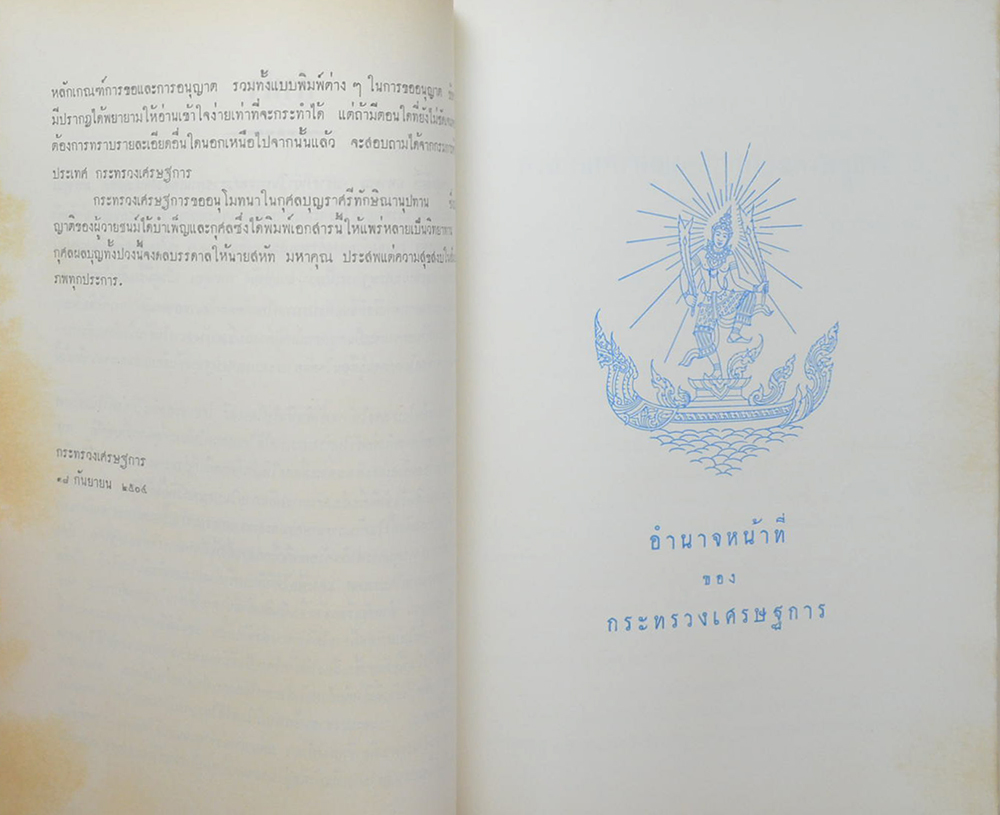 หลักเกณฑ์การขอและการอนุญาต รวมทั้งแบบพิมพ์ต่าง ๆ ในการขออนุญาต
มีปรากฏได้พยายามให้อ่านเข้าใจง่ายเท่าที่จะกระทำได้ แต่ถ้ามีตอนใดที่ยังไม่ชัดเจน
ต้องการทราบรายละเอียดอื่นใดนอกเหนือไปจากนั้นแล้ว จะสอบถามได้จากกรมการ
ประเทศ กระทรวงเศรษฐการ
กระทรวงเศรษฐการขออนุโมทนาในกุศลบุญราศรีทักษิณานุปทาน
ญาติของผู้วายชนม์ได้บำเพ็ญและกุศลซึ่งได้พิมพ์เอกสารนี้ให้แพร่หลายเป็นวิทยาทาน
กุศลผลบุญทั้งปวงนี้จงดลบรรดาลให้นายสหัท มหาคุณ ประสพแต่ความสุขสงบใน
ภพทุกประการ.
กระทรวงเศรษฐการ
๑๘ กันยายน ๒๕๐๔
อำนาจหน้าที่
ของ
กระทรวงเศรษฐการ